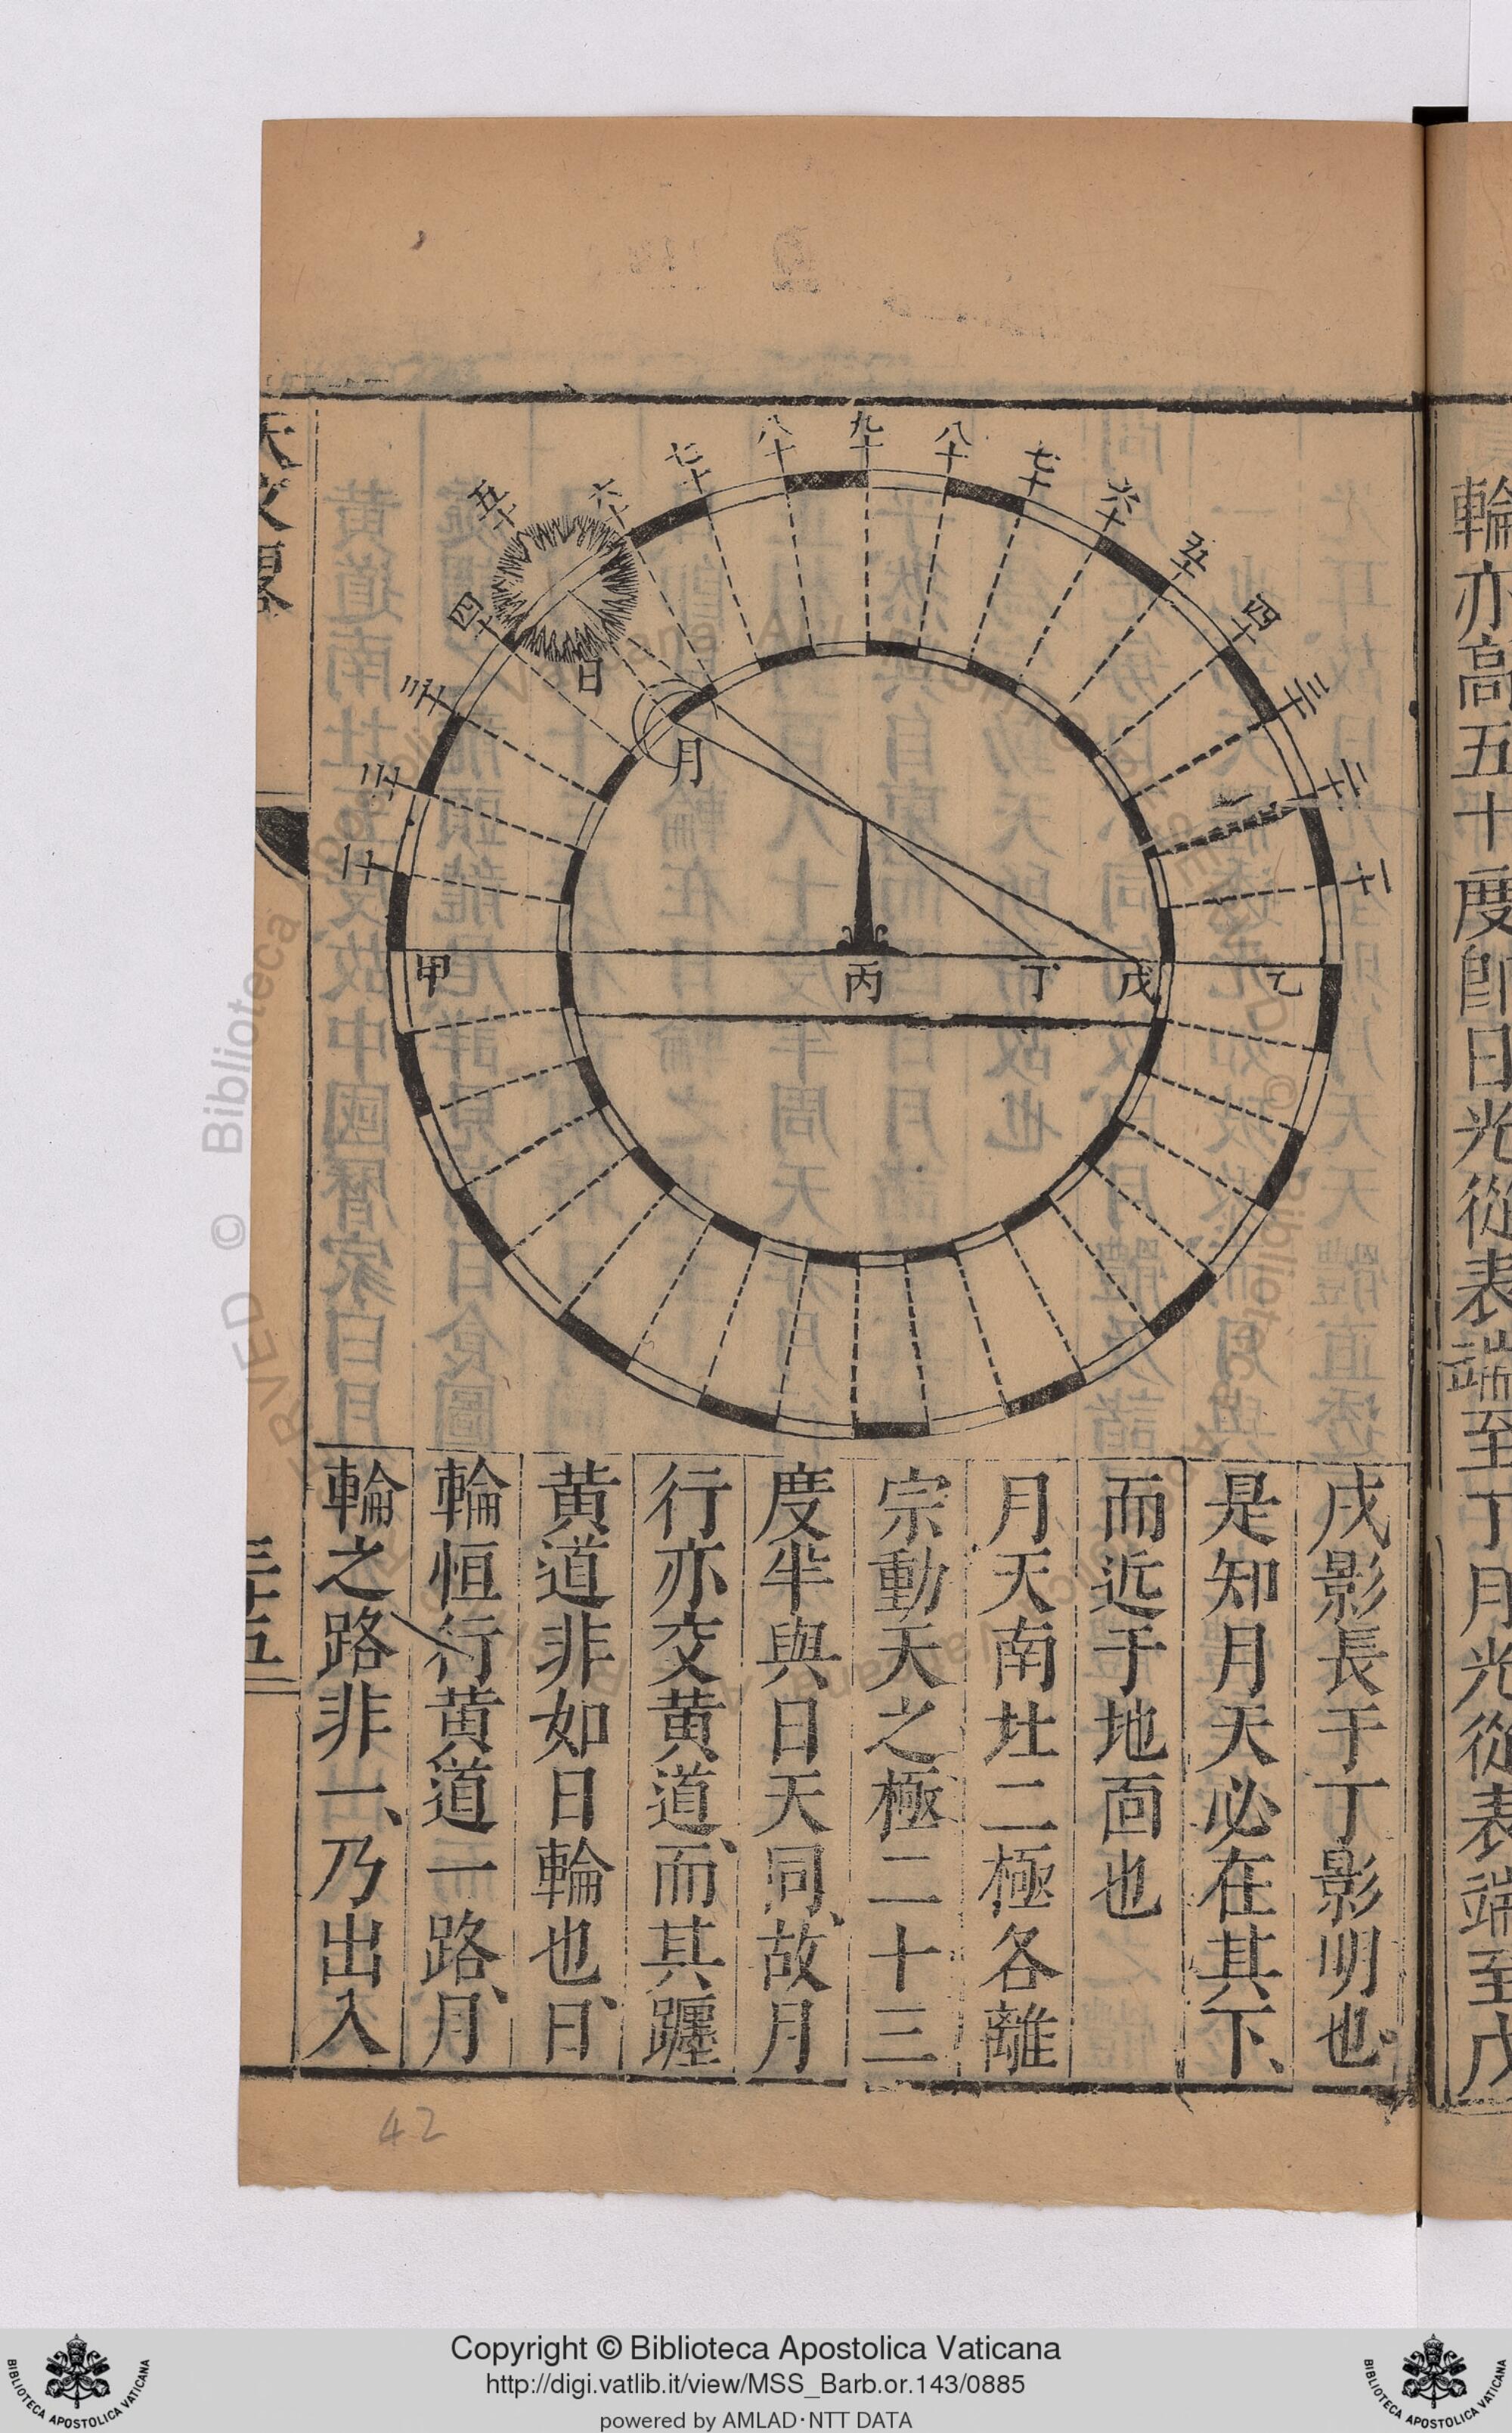 輪亦高五十度卽日光從表端至丁月光從表端至戊
九十
八十
七十
六十
五十
四十
三十
二十
一十
八十
七十
六十
五十
四十
三十
二十
一十
日
月
甲
丙
丁
戊
乙
戊影長于丁影明也。
是知月天必在其下、
而近于地面也
月天南北二極各離
宗動天之極二十三
度半與日天同、故月
行亦交黃道、而其躔
黃道非如日輪也、日
輪恒行黃道一路、月
輪之路非一、乃出入
天文畧
三十五
42
Copyright © Biblioteca Apostolica Vaticana
http://digi.vatlib.it/view/MSS_Barb.or.143/0885
powered by AMLAD·NTT DATA
BIBLIOTECA APOSTOLICA VATICANA
BIBLIOTECA APOSTOLICA VATICANA